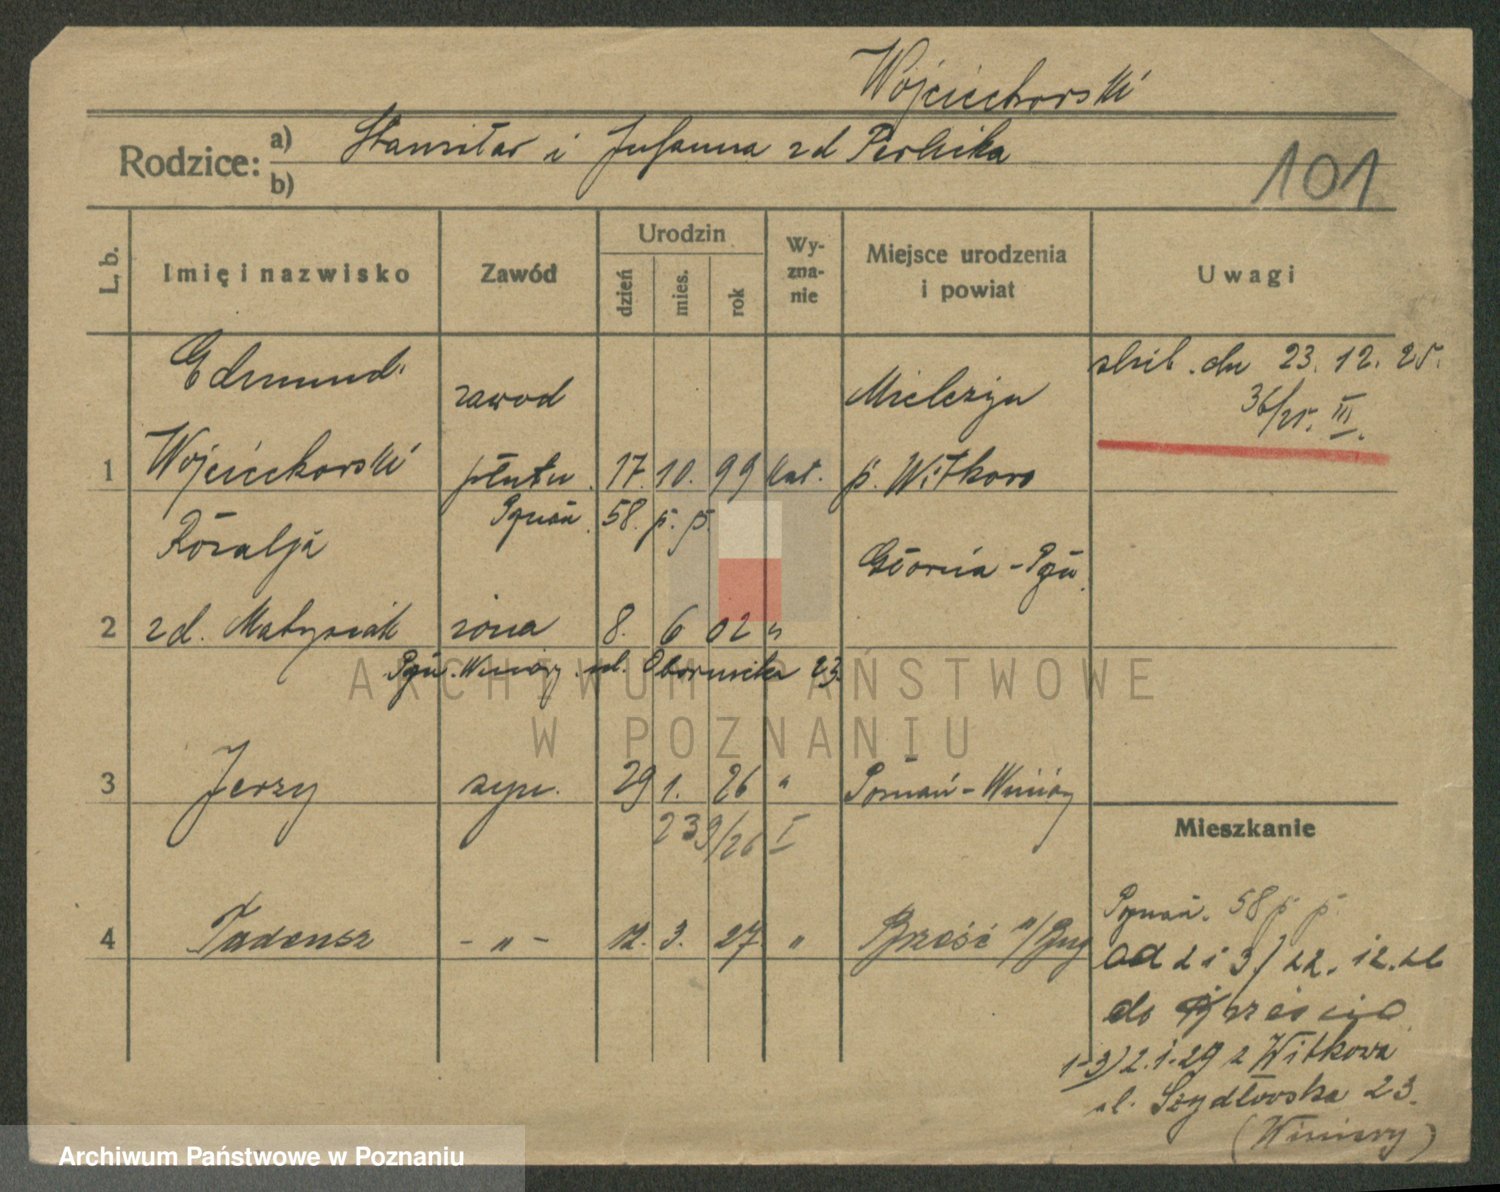 Wojciechowski
Rodzice: a) Stanisław i Zuzanna zd Perlicka
b)
101
L. b. Imię i nazwisko Zawód Urodzin dzień mies. rok Wy-zna-nie Miejsce urodzenia i powiat Uwagi
Edmund zawod Mielżyn ślub. dn 23. 12. 25.
36/25. III.
1 Wojciechowski plutn. 17. 10. 99 kat. p. Witkowo
Poznań 58. p. p.
Rozalja Główna - Pzń.
2 zd. Matysiak żona 8. 6 02 "
Pzń. Winiary. ul. Obornicka 23.
3 Jerzy syn. 29 1. 26 " Poznań - Winiary
239/26 I
Mieszkanie
Poznań. 58 p. p.
4 Tadeusz - " - 12. 3. 27 " Brześć n/Bug
od 2 i 3) 22. 12. 26
do Brześcia
1-3) 2.1.29 z Witkowa
ul. Szydłowska 23.
(Winiary)
ARCHIWUM PAŃSTWOWE
W POZNANIU
Archiwum Państwowe w Poznaniu